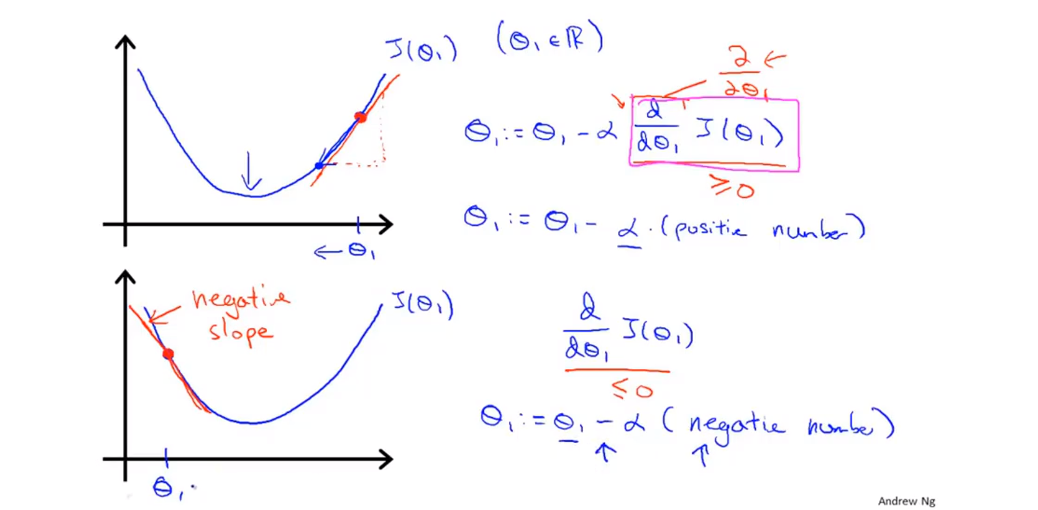 J(θ₁) (θ₁ ∈ ℝ)
∂
∂θ₁
θ₁ := θ₁ - α d/dθ₁ J(θ₁)
≥ 0
θ₁ := θ₁ - α · (positive number)
← θ₁
negative
slope
J(θ₁)
d/dθ₁ J(θ₁)
≤ 0
θ₁ := θ₁ - α (negative number)
θ₁
Andrew Ng